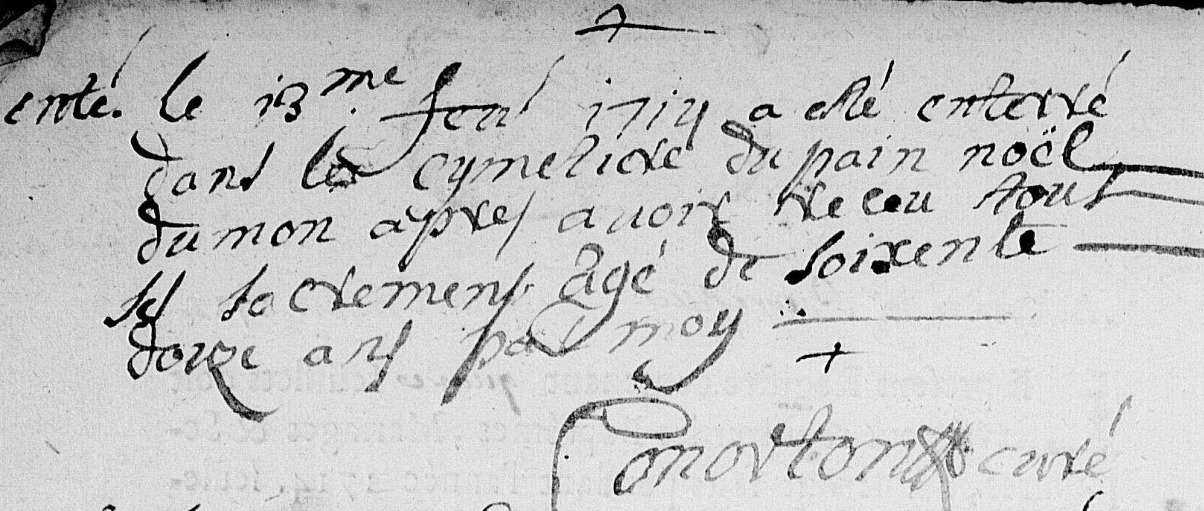 enté. le 13me feuÿ 1714 a esté enterré
dans le cymetiere du pain noël
dumon apres auoir receu tout
ses sacremens. âgé de soixente
douze ans par moy
morton curé